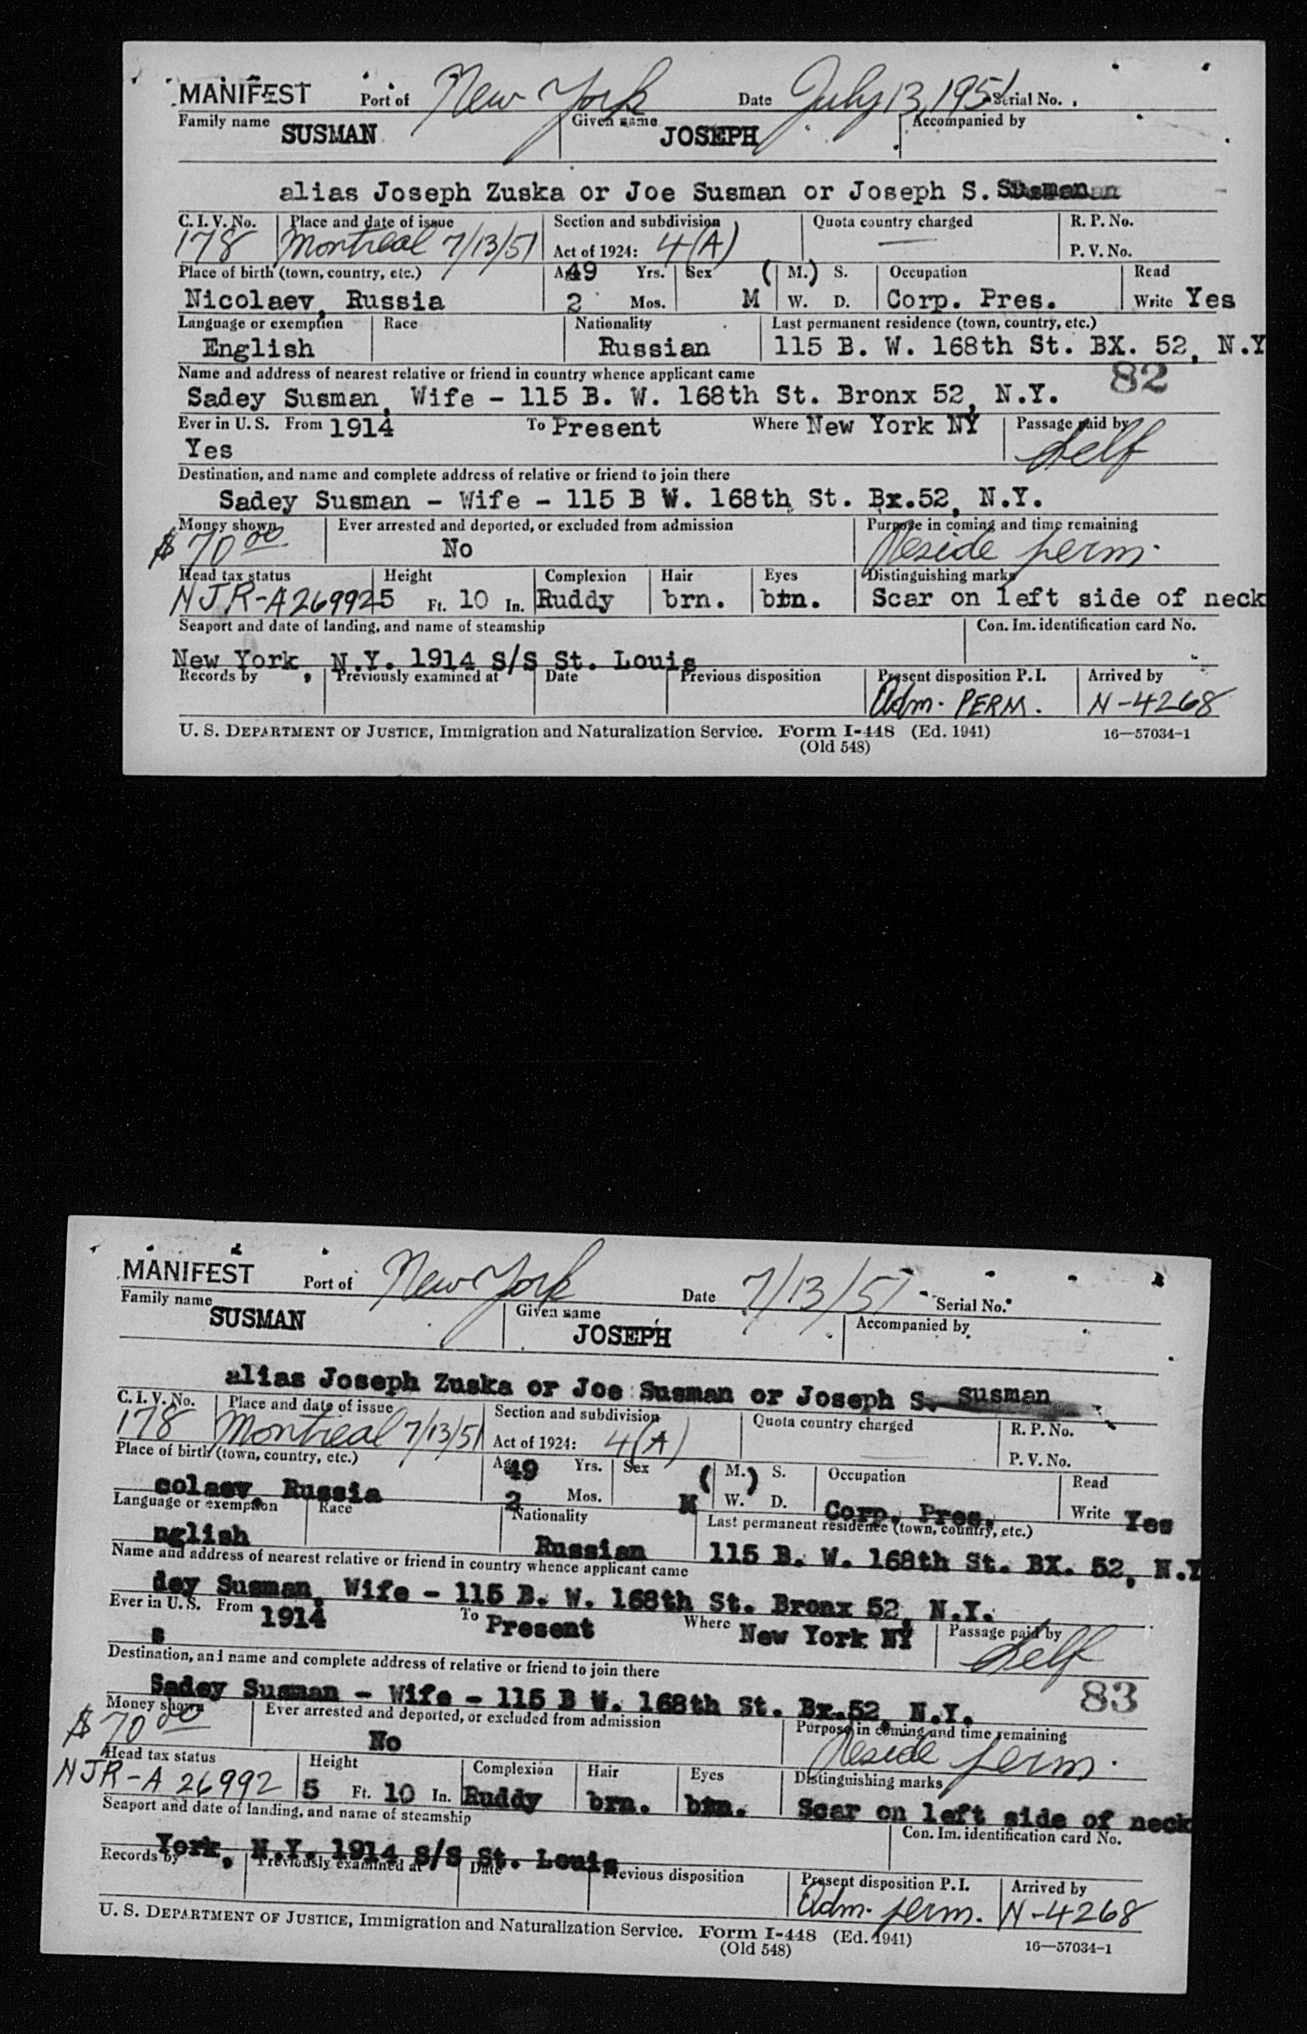 MANIFEST Port of New York Date July 13, 1951 Serial No.
Family name SUSMAN Given name JOSEPH Accompanied by
alias Joseph Zuska or Joe Susman or Joseph S. Susman
C. I. V. No. Place and date of issue Section and subdivision Quota country charged R. P. No.
178 Montreal 7/13/51 Act of 1924: 4(A) — P. V. No.
Place of birth (town, country, etc.) Age 49 Yrs. Sex (M.) S. Occupation Read
Nicolaev, Russia 2 Mos. M W. D. Corp. Pres. Write Yes
Language or exemption Race Nationality Last permanent residence (town, country, etc.)
English Russian 115 B. W. 168th St. BX. 52, N.Y
Name and address of nearest relative or friend in country whence applicant came 82
Sadey Susman, Wife - 115 B. W. 168th St. Bronx 52, N.Y.
Ever in U. S. From 1914 To Present Where New York NY Passage paid by
Yes Self
Destination, and name and complete address of relative or friend to join there
Sadey Susman - Wife - 115 B W. 168th St. Bx.52, N.Y.
Money shown Ever arrested and deported, or excluded from admission Purpose in coming and time remaining
$70 00 No Reside perm.
Head tax status Height Complexion Hair Eyes Distinguishing marks
NJR-A26992 5 Ft. 10 In. Ruddy brn. Scar on left side of neck
Seaport and date of landing, and name of steamship Con. Im. identification card No.
New York, N.Y. 1914 S/S St. Louis
Records by Previously examined at Date Previous disposition Present disposition P. I. Arrived by
Adm. PERM. N-4268
U. S. DEPARTMENT OF JUSTICE, Immigration and Naturalization Service. Form I-448 (Ed. 1941) 16—57034-1
(Old 548)
MANIFEST Port of New York Date 7/13/51 Serial No.
Family name SUSMAN Given name JOSEPH Accompanied by
alias Joseph Zuska or Joe Susman or Joseph S. Susman
C. I. V. No. Place and date of issue Section and subdivision Quota country charged R. P. No.
178 Montreal 7/13/51 Act of 1924: 4(A) P. V. No.
Place of birth (town, country, etc.) Age 49 Yrs. Sex (M.) S. Occupation Read
colaev, Russia 2 Mos. M W. D. Corp. Pres. Write Yes
Language or exemption Race Nationality Last permanent residence (town, country, etc.)
nglish Russian 115 B. W. 168th St. BX. 52, N.Y
Name and address of nearest relative or friend in country whence applicant came
dey Susman, Wife - 115 B. W. 168th St. Bronx 52, N.Y.
Ever in U. S. From 1914 To Present Where New York NY Passage paid by
s Self
Destination, and name and complete address of relative or friend to join there
Sadey Susman - Wife - 115 B W. 168th St. Bx.52, N.Y. 83
Money shown Ever arrested and deported, or excluded from admission Purpose in coming and time remaining
$70 00 No Reside perm.
Head tax status Height Complexion Hair Eyes Distinguishing marks
NJR-A 26992 5 Ft. 10 In. Ruddy brn. Scar on left side of neck
Seaport and date of landing, and name of steamship Con. Im. identification card No.
York, N.Y. 1914 S/S St. Louis
Records by Previously examined at Date Previous disposition Present disposition P. I. Arrived by
Adm. perm. N-4268
U. S. DEPARTMENT OF JUSTICE, Immigration and Naturalization Service. Form I-448 (Ed. 1941) 16—57034-1
(Old 548)